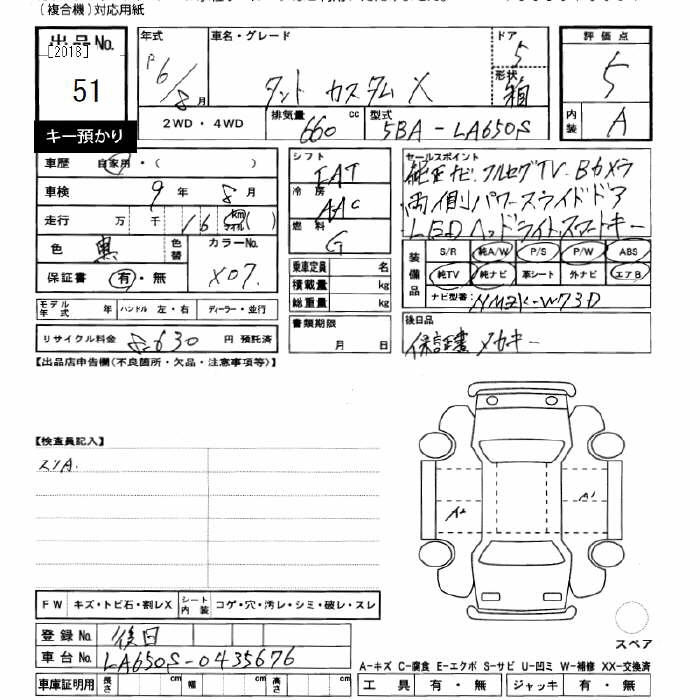 (複合機)対応用紙
出品No. [2013] 51
キー預かり
年式 R6/8月
車名・グレード タント カスタム X
ドア 5
形状 箱
評価点 5
内装 A
2WD・4WD
排気量 660 cc
型式 5BA-LA650S
車歴 自家用・( )
車検 9年 8月
走行 万 千 km マイル ( )
色 黒 色替 カラーNo. X07
保証書 有・無
モデル年式 年 ハンドル 左・右 ディーラー・並行
リサイクル料金 8630 円 預託済
シフト FAT
冷房 AAC
燃料 G
乗車定員 名
積載量 kg
総重量 kg
書類期限 月 日
セールスポイント
純正ナビ フルセグTV Bカメラ
両側パワースライドドア
LEDヘッドライト スマートキー
装備品 S/R 純A/W P/S P/W ABS
純TV 純ナビ 革シート 外ナビ エアB
ナビ型番: NMZK-W73D
後日品
保証書 メカキー
【出品店申告欄(不良箇所・欠品・注意事項等)】
【検査員記入】
スリA.
A2
A1
FW キズ・トビ石・割レX シート内装 コゲ・穴・汚レ・シミ・破レ・スレ
登録No. 後日
車台No. LA650S-0435676
車庫証明用 長さ cm 幅 cm 高さ cm
スペア
A-キズ C-腐食 E-エクボ S-サビ U-凹ミ W-補修 XX-交換済
工具 有・無 ジャッキ 有・無